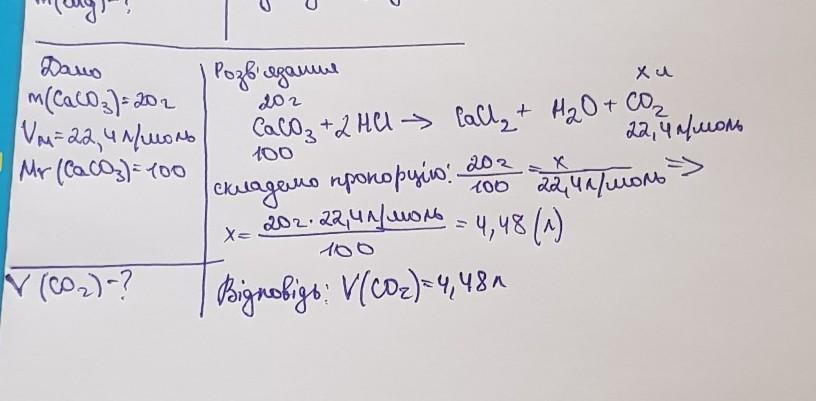 Дано
m(CaCO₃)=20г
Vм=22,4л/моль
Mr(CaCO₃)=100
V(CO₂)-?
Розв'язання
20г х л
CaCO₃+2HCl→ CaCl₂+ H₂O+CO₂
100 22,4л/моль
складемо пропорцію: 20г/100=х/22,4л/моль⇒
х=20г·22,4л/моль/100=4,48(л)
Відповідь: V(CO₂)=4,48л